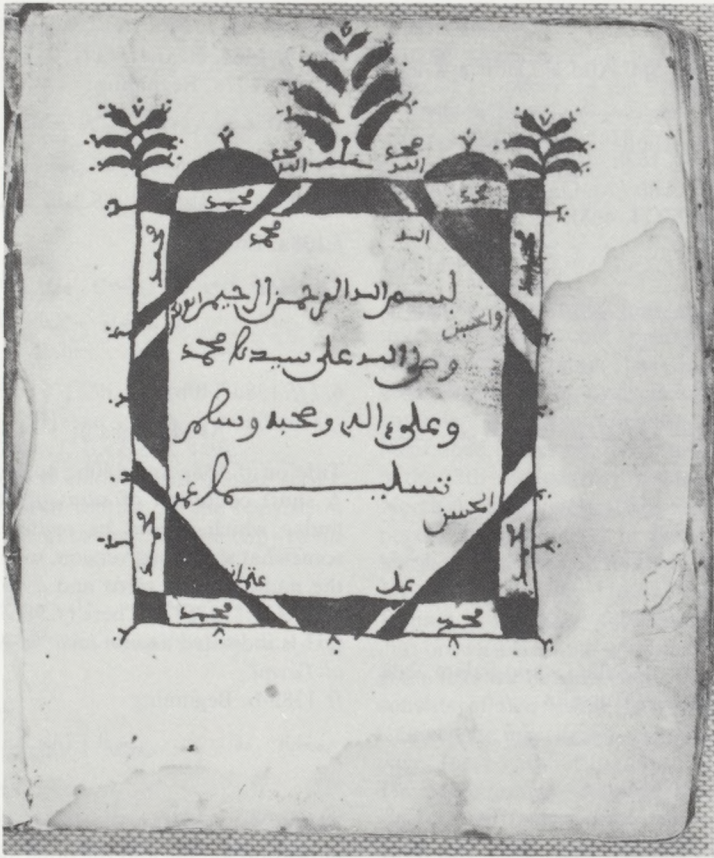 محمد محمد
الله الله
محمد محمد
محمد الله
محمد محمد
بسم الله الرحمن الرحيم
والحسين
وصلى الله على سيدنا محمد
وعلى ءاله وصحبه وسلم
تسليما
عمر
الحسن
عثمان على
محمد محمد